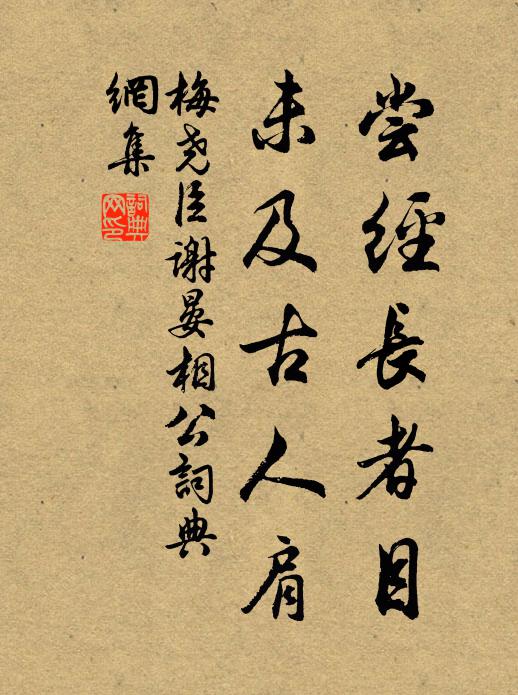 尝經長者目
未及古人肩
梅尧臣谢晏相公詞典
網集
詞典
网印